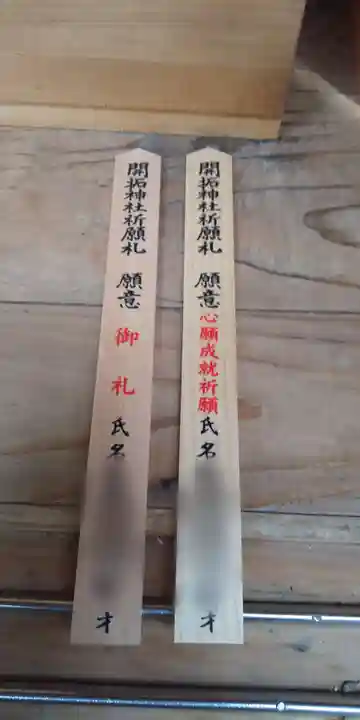 開拓神社祈願札 願意 心願成就祈願 氏名 才
開拓神社祈願札 願意 御札 氏名 才